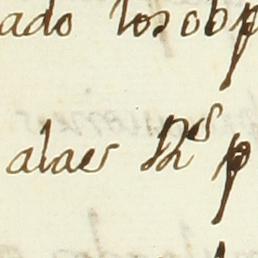 ado los ob p
alaes Rs p